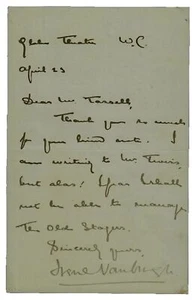 Globe Theatre W.C.
April 23
Dear Mr. Farrell,
Thank you so much
for your kind note. I
am writing to Mr. Francis,
but alas! I fear I shall
not be able to manage
The Old Stagers.
Sincerely yours,
Irene Vanbrugh